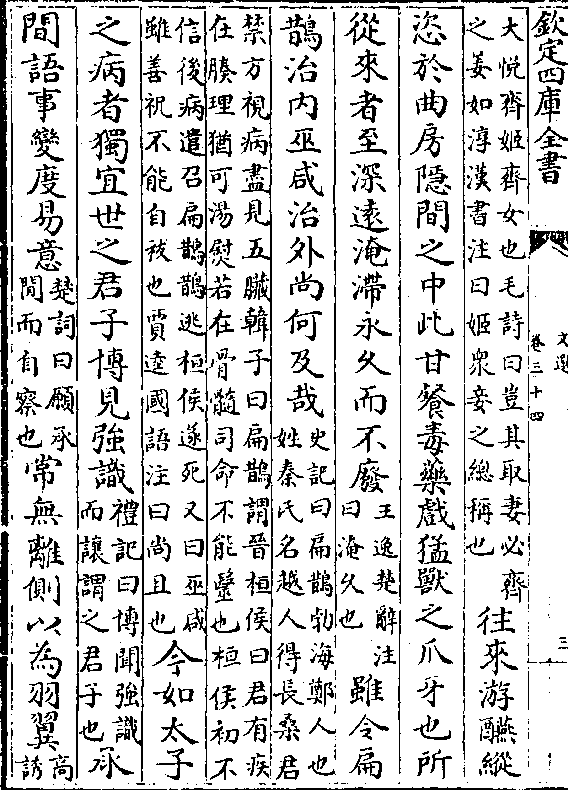 欽定四庫全書
文選
卷三十四
三
大悅齊姬齊女也毛詩曰豈其取妻必齊
之姜如淳漢書注曰姬衆妾之總稱也
往來游醼縱
恣於曲房隱間之中此甘餐毒藥戲猛獸之爪牙也所
從來者至深遠淹滯永久而不廢
王逸楚辭注
曰淹久也
雖令扁
鵲治内巫咸治外尚何及哉
史記曰扁鵲勃海鄭人也
姓秦氏名越人得長桑君
禁方視病盡見五臟韓子曰扁鵲謂晉桓侯曰君有疾
在腠理猶可湯熨若在骨髓司命不能毉也桓侯初不
信後病遣召扁鵲鵲逃桓侯遂死又曰巫咸
雖善祝不能自祓也賈逵國語注曰尚且也
今如太子
之病者獨宜世之君子博見強識
禮記曰博聞強識
而讓謂之君子也
承
間語事變度易意
楚詞曰願承
閒而自察也
常無離側以為羽翼
高
誘